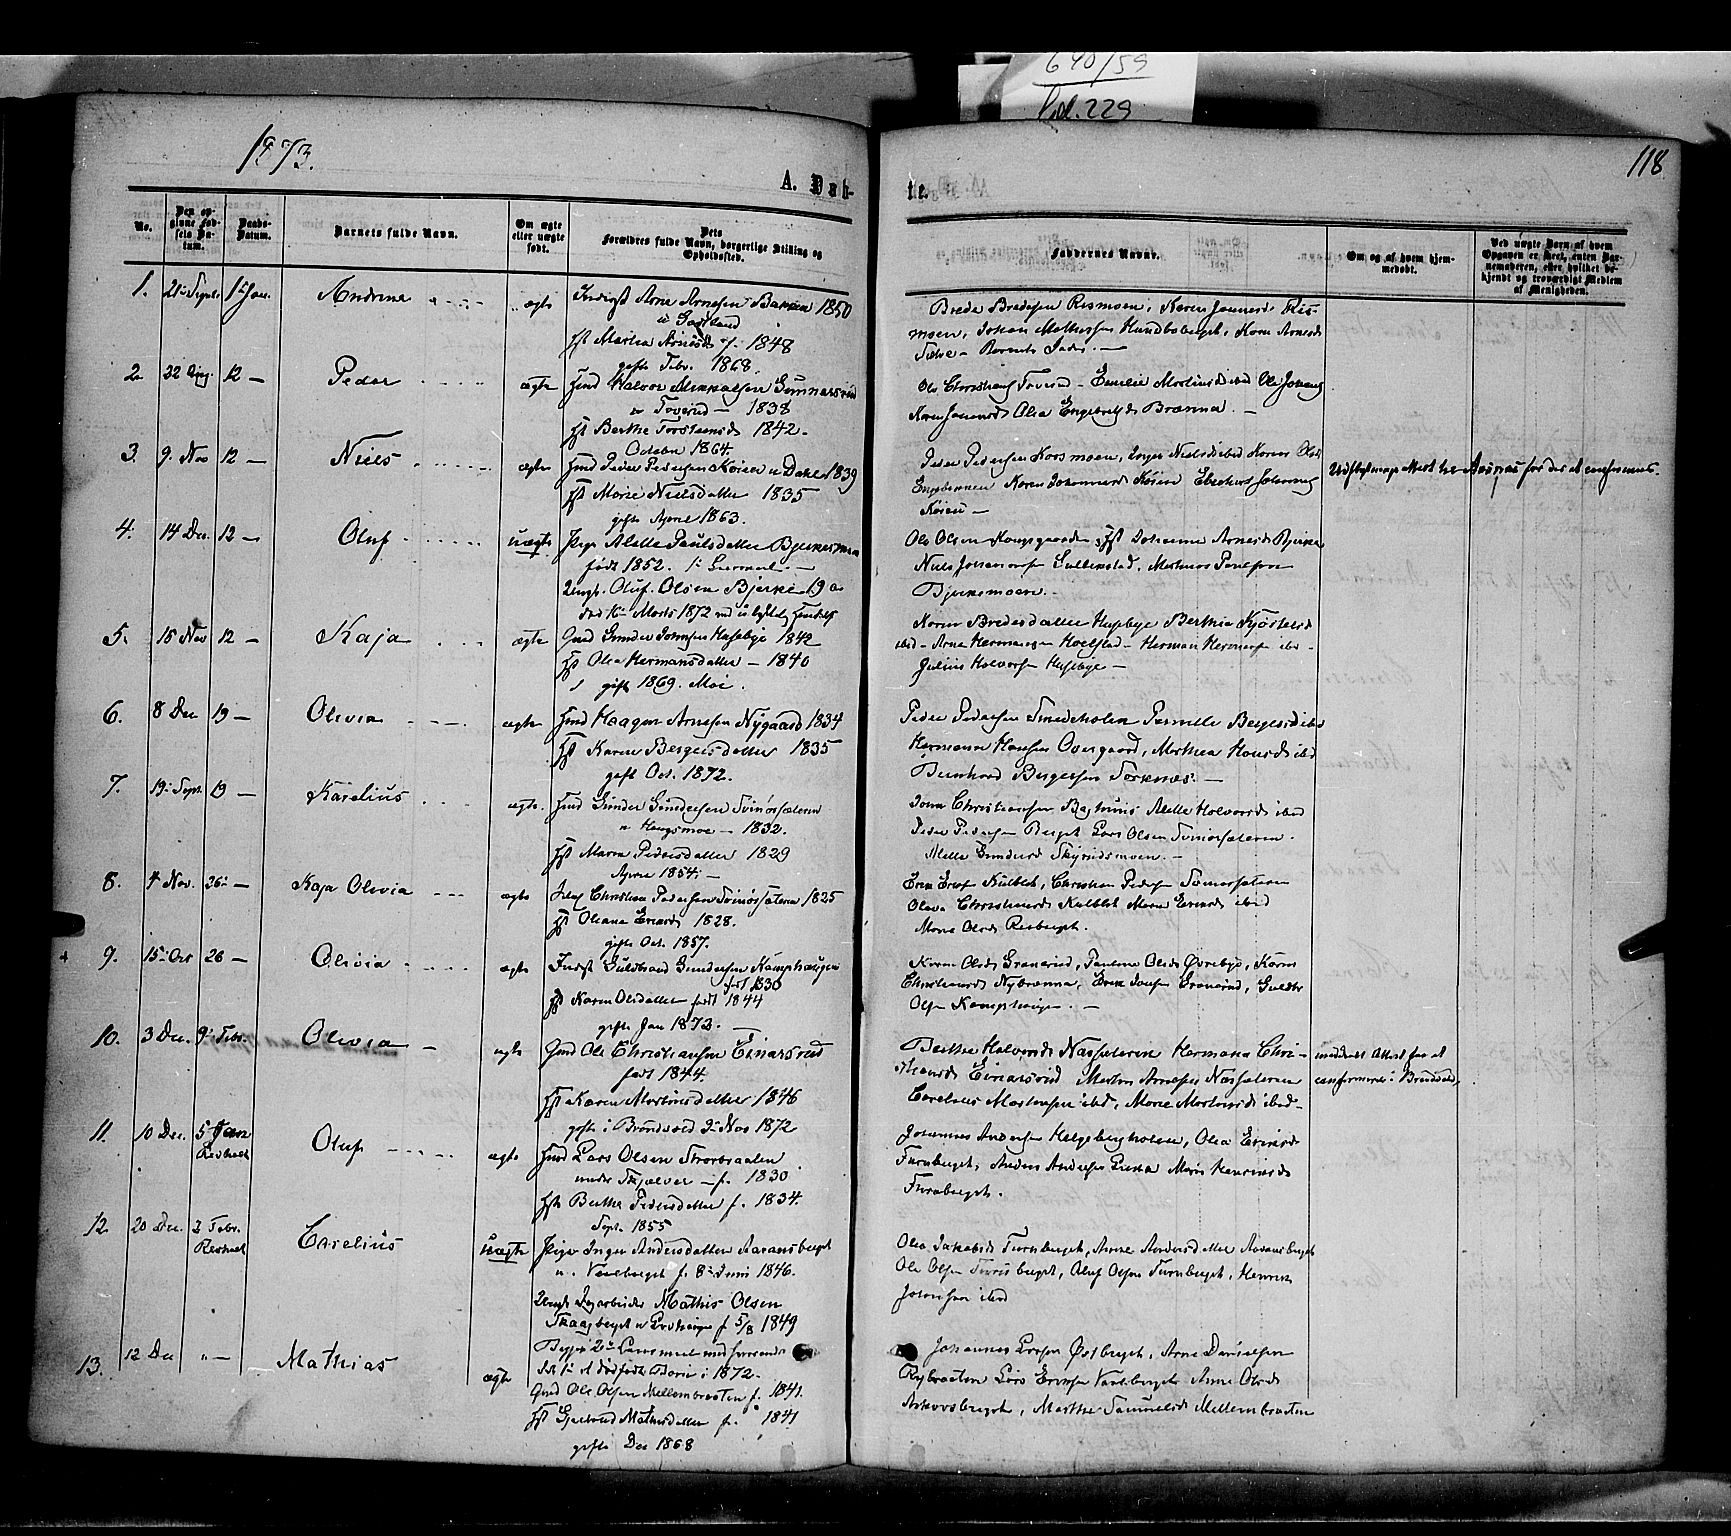 690/59
Pd. 229
1873.
118
A. Døb-
te.
No.
Den op-
givne Fød-
sels Da-
tum.
Daabs-
Datum.
Barnets fulde Navn.
Om ægte
eller uægte
født.
Dets
Forældres fulde Navn, borgerlige Stilling og
Opholdssted.
Faddernes Navne.
Om og af hvem hjem-
medøbt.
Ved uægte Børn af hvem
Opgaven er skeet, enten Bar-
nemoderen, eller hvilket be-
kjendt og troværdigt Medlem
af Menigheden.
1. 21de Septr. 1ste Jan. Andrine ægte Indrgst Arne Arnesen Bakken 1850
u Gaarland
Hst Marthea Arnesd f. 1848
gifte Febr. 1868.
Brede Bredesen Rismoen, Karen Jonnesd Ris-
moen, Johan Mathissen Hundboberget, Karen Arnesd
2 22 Aug. 12 — Peder ægte Hmd Halvor Mikkelsen Gunnarsrud
u Toverud — 1838
Hst Berthe Torstensd 1842 -
October 1864.
Ole Christians Toverud - Emilie Mortensd ibd Ole Johans
Karen Jonnesd Olea Engebretsd Brænna. —
3. 9. Nov 12 — Niels ægte Hmd Peder Pedersen Køien u Dahle 1839
Hst Marie Nielsdatter 1835
gifte April 1863.
Peder Pedersen Korsmoen, Inger Nielsd ibd Karen Olsd
Engebernen Karen Johannesd Køien
Køien —
4. 14 Dec. 12 — Oluf uægte Pige Alette Paulsdatter Bjerkesmoen
født 1852. 1ste Leiermaal. —
Ungk. Oluf Olsen Bjerke 19 a
Ole Olsen Kongsgaarden, Hst Johanne Arnesd Bjerke
Niels Johannesen Gullikstad, Mathias Paulsen
Bjerkesmoen. —
5. 15 Nov 12 — Kaja ægte Gmd Gunder Johnsen Husebye 1842
Hst Olea Hermansdatter — 1840
gifte 1869. Mai.
Karen Bredesdatter Husebye Berthea Kjøstelsd
ibd - Arne Hermansen Hoelstad - Herman Hermans ibd -
Julius Halvors Husebye —
6. 8 Dec 19 — Olivia ægte Hmd Haagen Arnesen Nygaard 1834
Hst Karen Bergersdatter 1835
gifte Oct. 1872.
Peder Pedersen Smedeholen Pernille Bergersd ibd
Hermann Hansen Overgaard, Marthea Hansd ibd
Bernhard Bergersen Torknæs. —
7. 19de Sept. 19 — Karelius ægte. Hmd Gunder Gundersen Svinørsæteren
u Haugsmoe — 1832.
Hst Maren Pedersdatter 1829
April 1854. —
Peder Pedersen Berget Lars Olsen Svinørsæteren.
Mille Gundersd Skyrudsmoen. —
8. 4 Nov. 26de — Kaja Olivia ægte Christian Pedersen Svinørsæteren 1825
Hst Oliana Ericsd 1828.
gifte Oct. 1857.
Erik Ericsen Kulblik, Christian Pedersen Svinørsæteren
Olava Christiansd Kulblik Marie Ericsd ibd
Marie Olsd Risberget.
9. 15de Oct 26 — Olivia ægte Indst Guldbrand Gundersen Kamphaugen
født 1830
Hst Karen Olsdatter født 1844
gifte Jan 1872. —
Karen Olsd Granerud, Pauline Olsd Øvrebye, Karen
Christiansd Nybrænna, Erik Josefsen Granerud, Guldbr
Olsen Kamphaugen. —
10. 3 Dec. 9de Febr. Olivia — ægte Gmd Ole Christiansen Einarsrud
født 1844.
Hst Karen Mortensdatter 1846
gifte i Brandvold 3de Nov 1872
Berthe Halvorsd Næssæteren Hermana Chri-
stiansd Einarsrud Morten Arnesen Næssæteren
Carelius Mortensen ibd, Marie Mortensd ibd -
meddeelt Attest for at
confirmeres i Brandvold.
11. 10 Dec. 5 Jan Revholt Oluf ægte Hmd Lars Olsen Storbraaten
under Skjælver — f. 1830
Hst Berthe Pedersdatter f. 1834.
Sept. 1855
Johannes Andersen Helgebergholen, Olea Ericsd
Furuberget, Anders Andersen Marie Henriksd
Furuberget.
12. 20 Dec. 2 Febr. Revholt Carelius uægte Pige Inger Andersdatter Aaransberget
u. Varlberget f. 8de Juni 1846.
Ungk Dagarbeider Mathis Olsen
Skaagberget u f 5/8 1849
Begges 2det Leiermaal med hverandre
Ole Olsen Furuberget, Oluf Olsen Furuberget, Henrik
Johnsen ibd
13. 12 Dec " — Mathias ægte Gmd Ole Olsen Mellembraaten f. 1841.
Hst Gjertrud Mathisdatter f. 1841
gifte Dec 1868
Johannes Larsen Østberget, Arne Danielsen
Rybraaten Lars Ericsen Varlberget Anne Olsd
Aaransberget, Marthe Samuelsd Mellembraaten